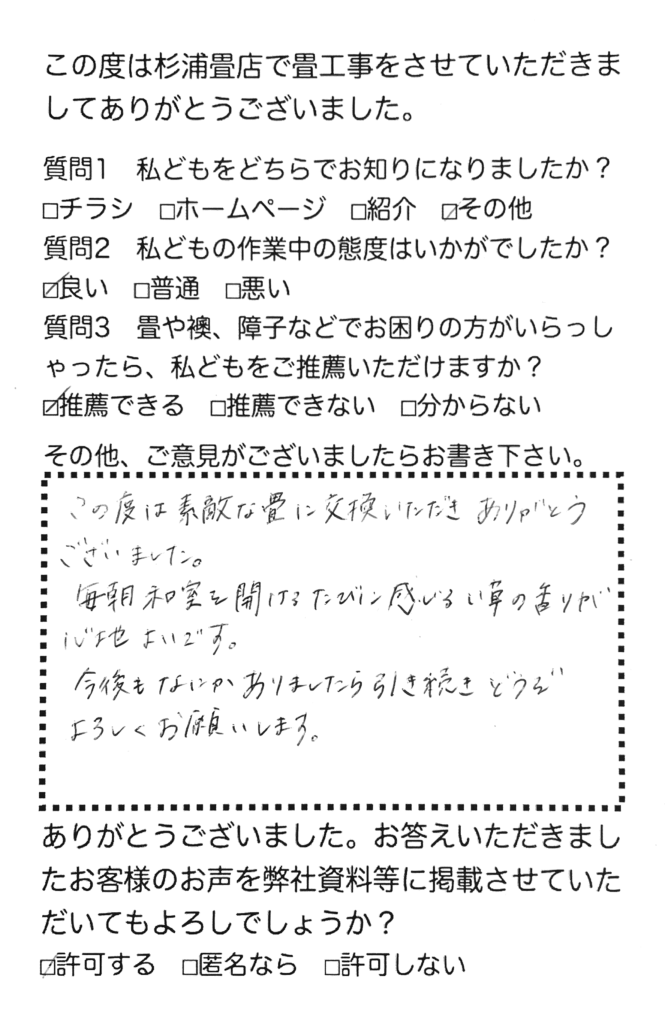 この度は杉浦畳店で畳工事をさせていただきま
してありがとうございました。
質問1　私どもをどちらでお知りになりましたか？
□チラシ　□ホームページ　□紹介　☑その他
質問2　私どもの作業中の態度はいかがでしたか？
☑良い　□普通　□悪い
質問3　畳や襖、障子などでお困りの方がいらっし
ゃったら、私どもをご推薦いただけますか？
☑推薦できる　□推薦できない　□分からない
その他、ご意見がございましたらお書き下さい。
この度は素敵な畳に交換いただき ありがとう
ございました。
毎朝 和室を開けるたびに感じるい草の香りが
心地よいです。
今後もなにかありましたら引き続き どうぞ
よろしくお願いします。
ありがとうございました。お答えいただきまし
たお客様のお声を弊社資料等に掲載させていた
だいてもよろしでしょうか？
☑許可する　□匿名なら　□許可しない